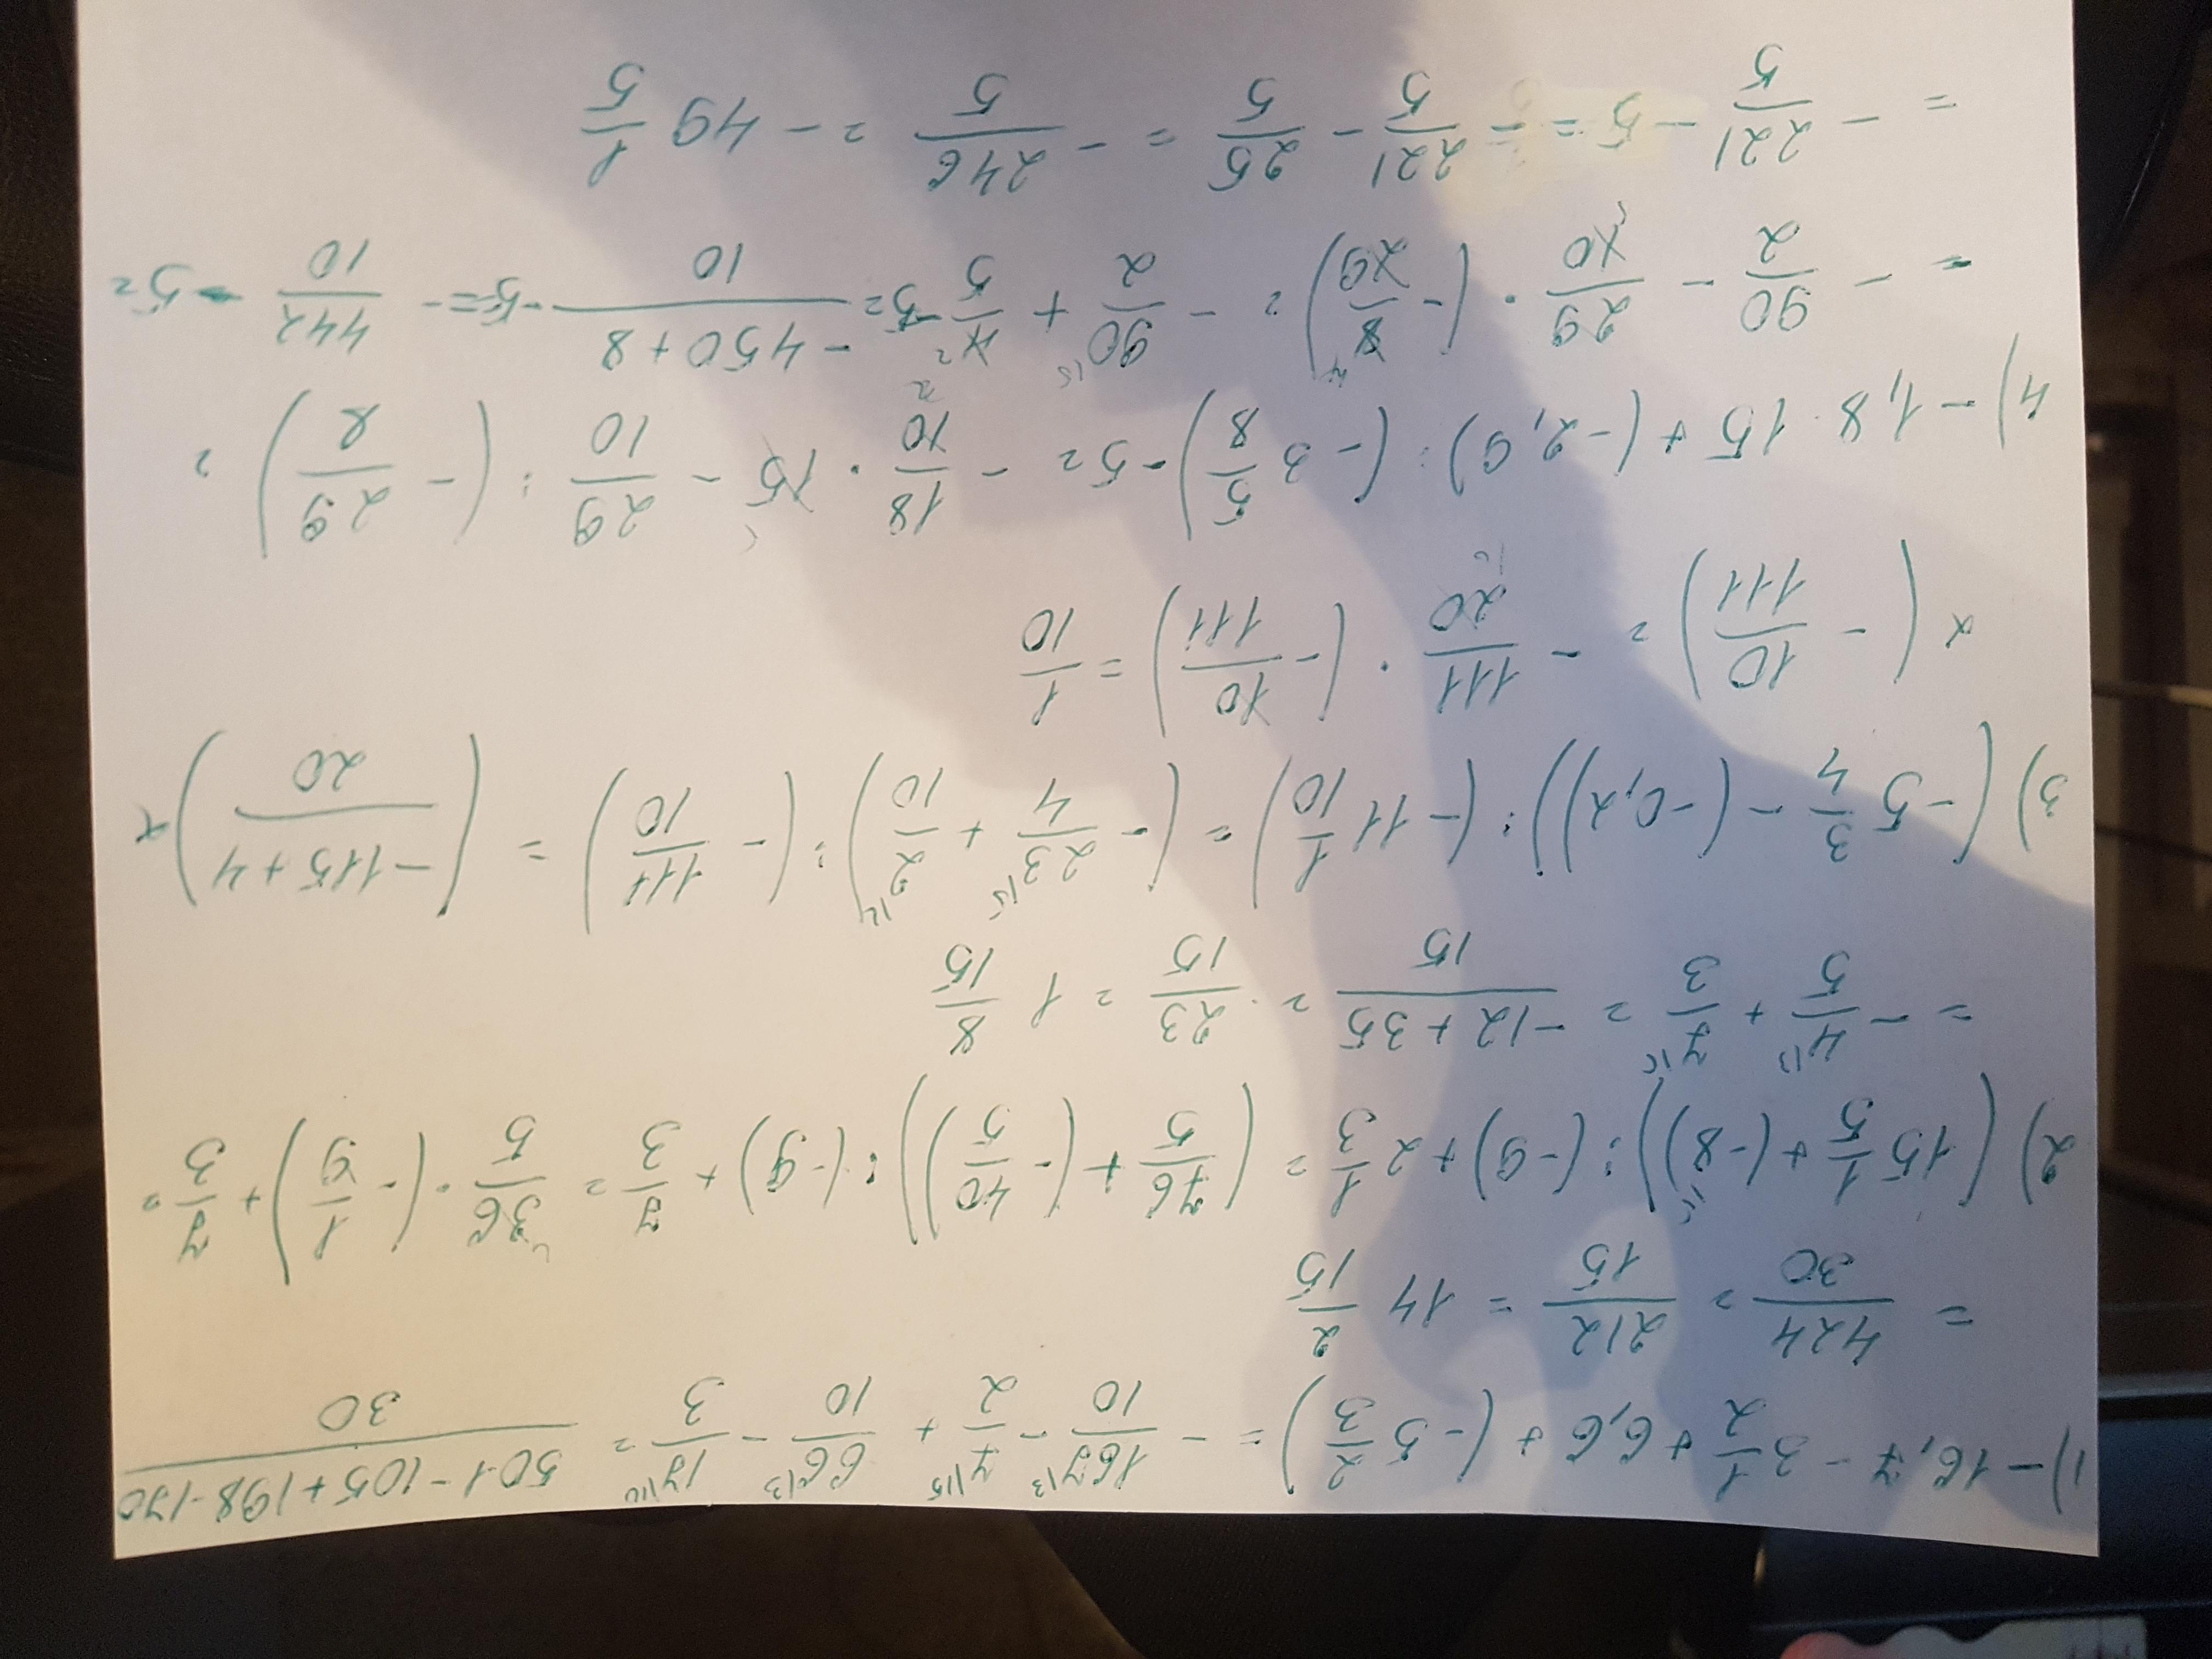 1) -16,7 - 3 1/2 + 6,6 + (-5 2/3) = - 167|3/10 - 7|15/2 + 66|3/10 - 17|10/3 = 501-105+198-170/30
= 424/30 = 212/15 = 14 2/15
2) (15 1/5 + (-8)) : (-9) + 2 1/3 = (76/5 + (-40/5)) : (-9) + 7/3 = 36/5 · (-1/9) + 7/3 =
= - 4|3/5 + 7|5/3 = -12+35/15 = 23/15 = 1 8/15
3) (-5 3/4 - (-0,2)) : (-11 1/10) = (- 23|5/4 + 2|2/10) : (- 111/10) = (-115+4/20) ×
× (- 10/111) = - 111/20 · (- 10/111) = 1/10
4) -1,8 · 15 + (-2,9) : (-3 5/8) - 5 = - 18/10 · 15 - 29/10 : (- 29/8) =
= - 90/2 - 29/10 · (- 8/29) = - 90|5/2 + 4|2/5 - 5 = -450+8/10 - 5 = - 442/10 - 5 =
= - 221/5 - 5 = - 221/5 - 25/5 = - 246/5 = - 49 1/5